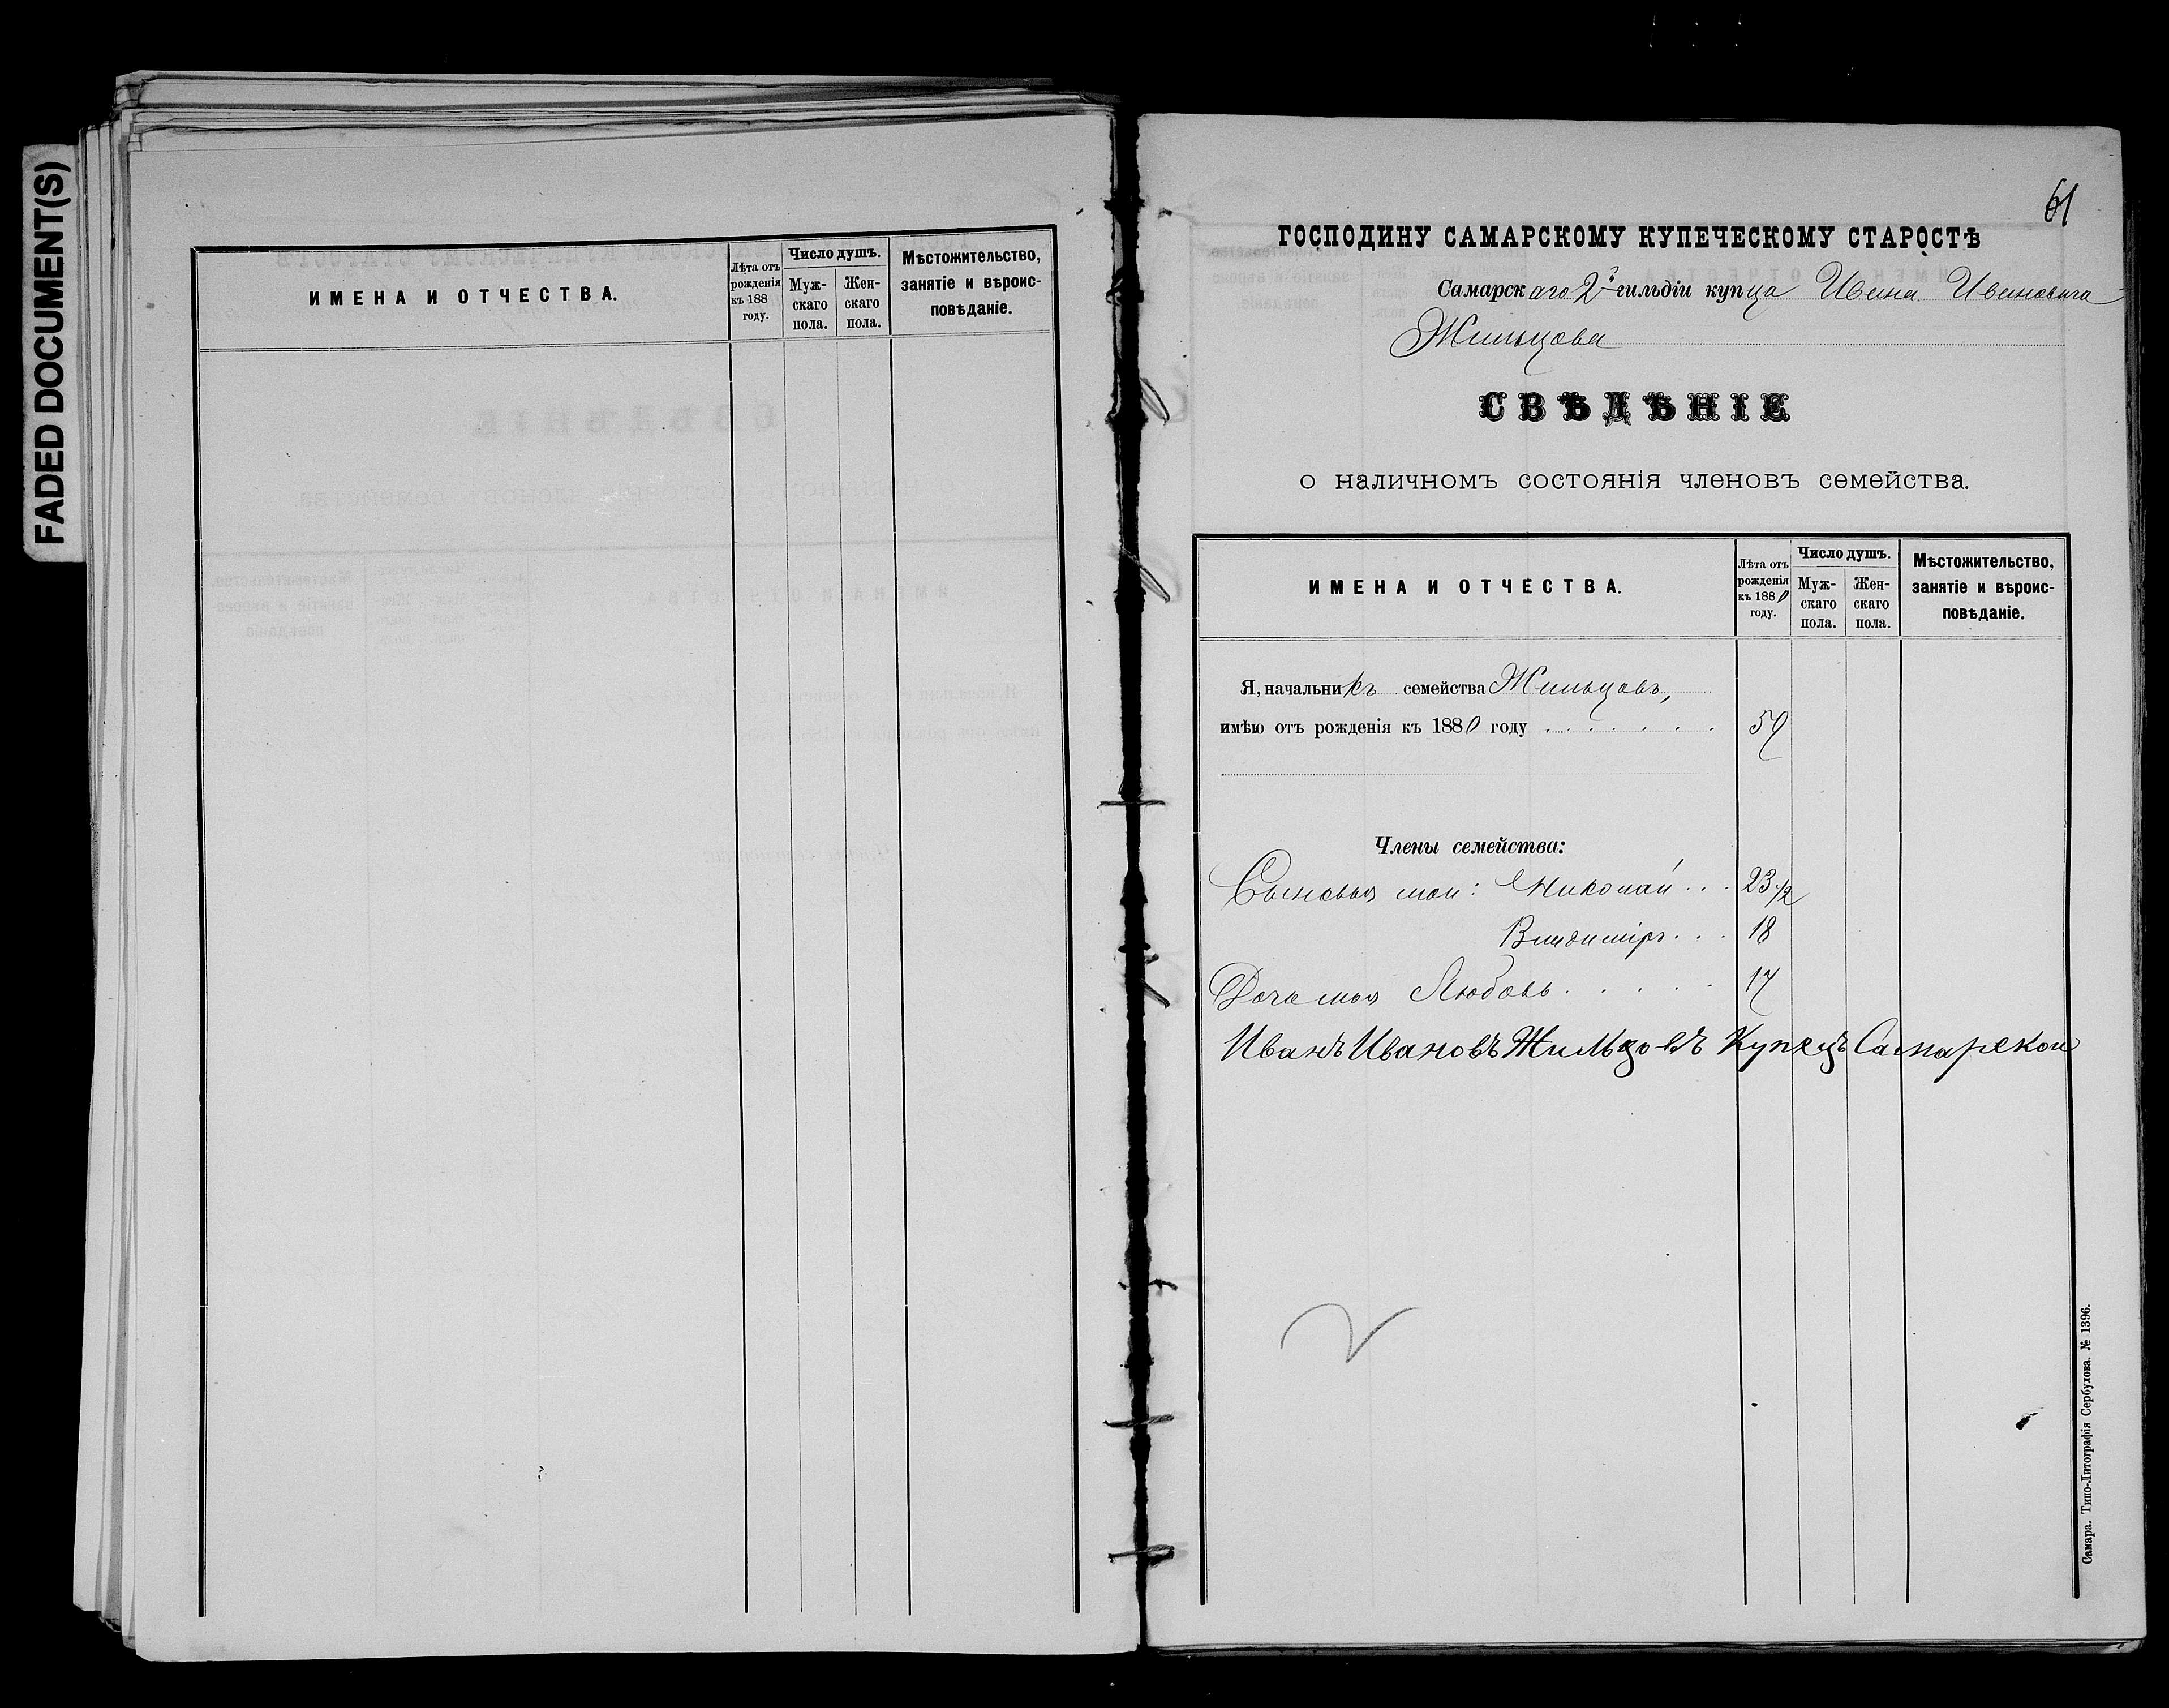 FADED DOCUMENT(S)
ИМЕНА И ОТЧЕСТВА.
Лѣта отъ рожденія къ 188 году.
Число душъ.
Мужскаго пола.
Женскаго пола.
Мѣстожительство, занятіе и вѣроисповѣданіе.
61
ГОСПОДИНУ САМАРСКОМУ КУПЕЧЕСКОМУ СТАРОСТѢ
Самарскаго 2й гильдіи купца Ивана Ивановича
Жильцова
СВѢДѢНІЕ
о наличномъ состоянія членовъ семейства.
ИМЕНА И ОТЧЕСТВА.
Лѣта отъ рожденія къ 1880 году.
Число душъ.
Мужскаго пола.
Женскаго пола.
Мѣстожительство, занятіе и вѣроисповѣданіе.
Я, начальникъ семейства Жильцовъ,
имѣю отъ рожденія къ 1880 году . . . . . . .
Члены семейства:
Сыновья мои: Николай . . . 23 1/2
Владиміръ . . . 18
Дочь моя Любовь . . . . . 17
Иванъ Ивановъ Жильцовъ Купецъ Самарской
Самара. Типо-Литографія Сербулова. № 1396.